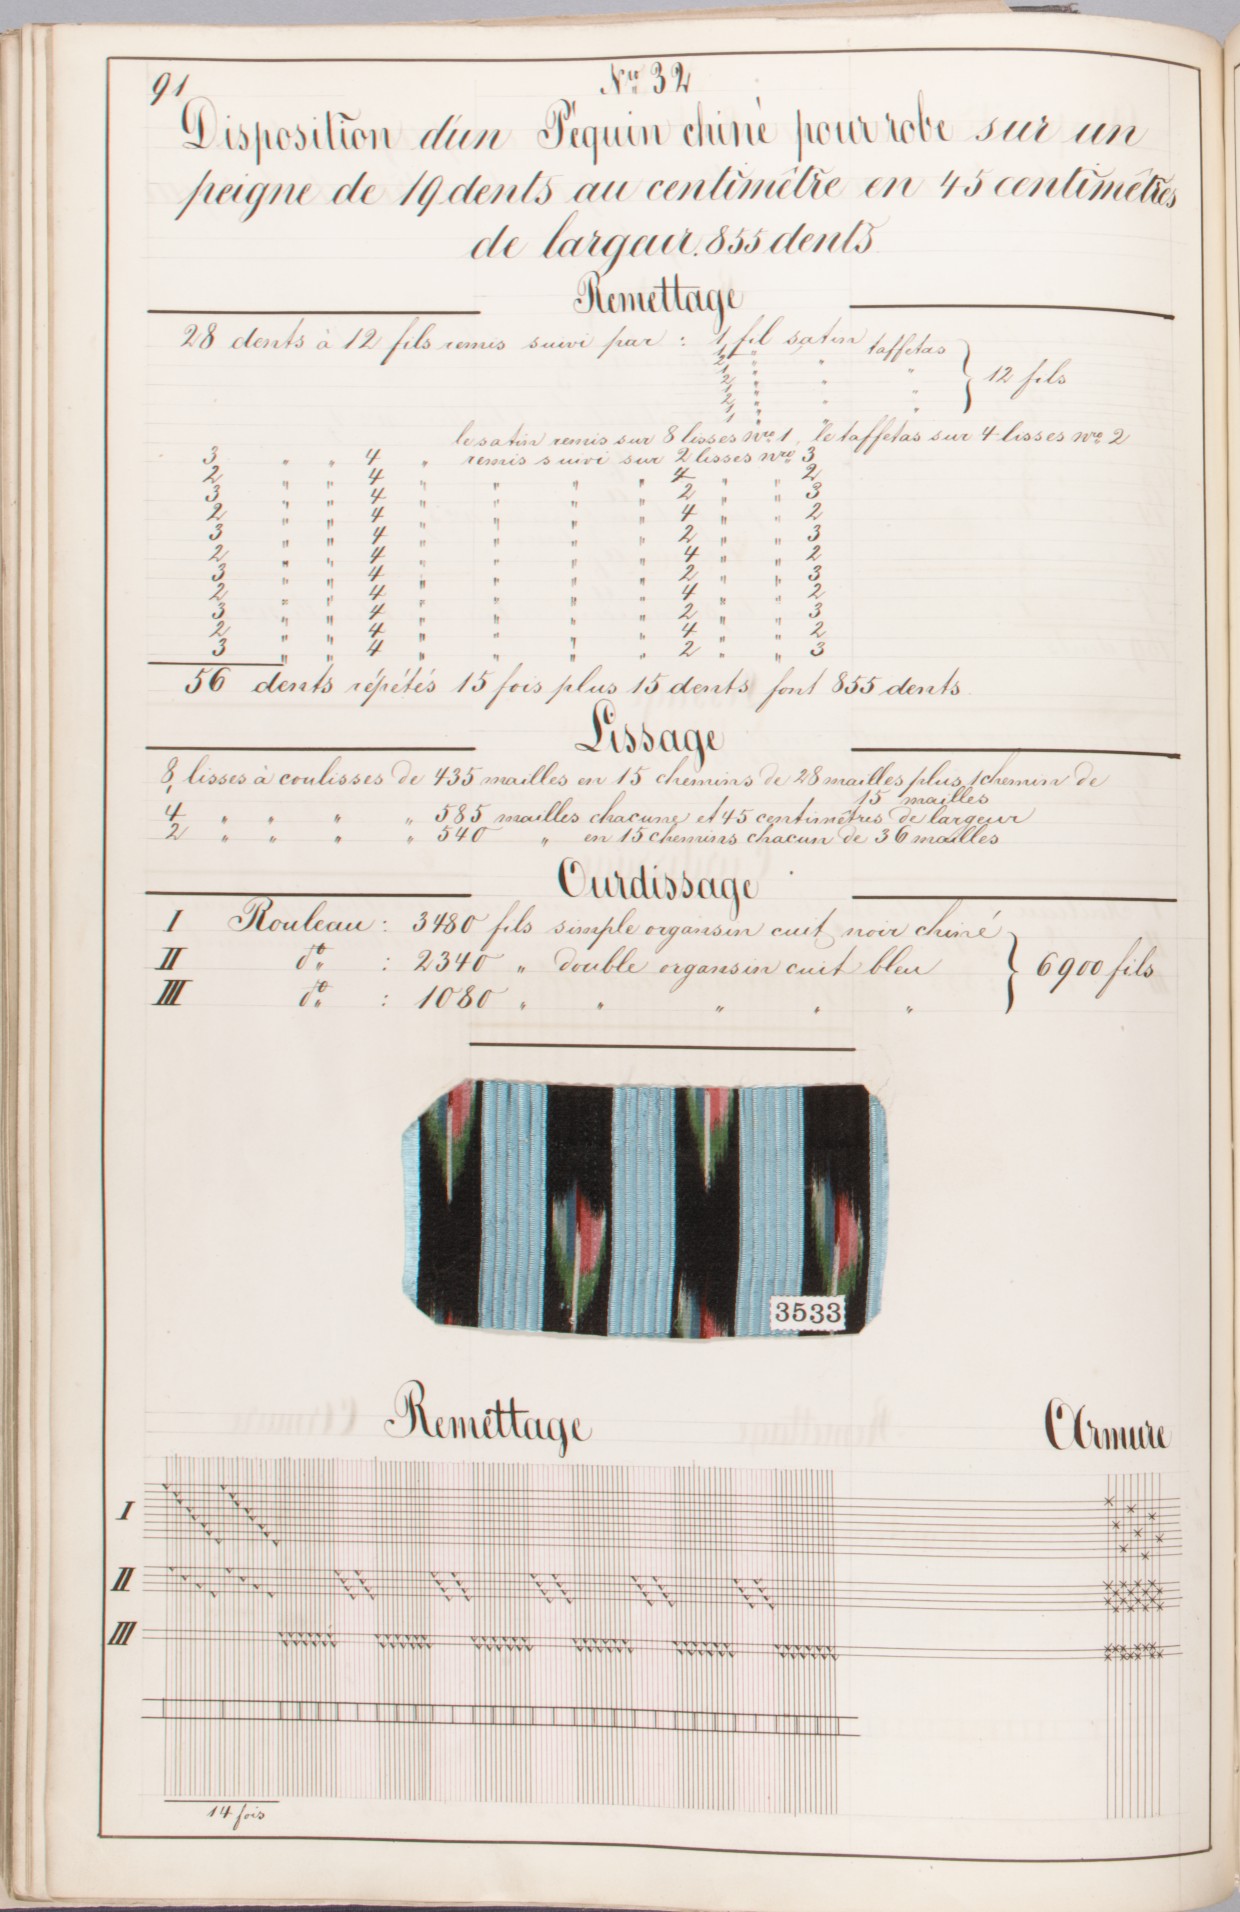 91
Nro 32
Disposition d'un Péquin chiné pour robe sur un
peigne de 19 dents au centimètre en 45 centimètres
de largeur. 855 dents
Remettage
28 dents à 12 fils remis suivi par : 1 fil satin taffetas
2 " " "
1 "
2 " " " } 12 fils
1 "
2 " " "
1 " "
1 "
le satin remis sur 8 lisses nro 1, le taffetas sur 4 lisses nro 2
3 " " 4 " remis suivi sur 2 lisses nro 3
2 " " 4 " " " " 4 " " 2
3 " " 4 " " " " 2 " " 3
2 " " 4 " " " " 4 " " 2
3 " " 4 " " " " 2 " " 3
2 " " 4 " " " " 4 " " 2
3 " " 4 " " " " 2 " " 3
2 " " 4 " " " " 4 " " 2
3 " " 4 " " " " 2 " " 3
2 " " 4 " " " " 4 " " 2
3 " " 4 " " " " 2 " " 3
56 dents répétés 15 fois plus 15 dents font 855 dents
Lissage
8 lisses à coulisses de 435 mailles en 15 chemins de 28 mailles plus 1 chemin de
15 mailles
4 " " " " 585 mailles chacune et 45 centimètres de largeur
2 " " " " 540 " en 15 chemins chacun de 36 mailles
Ourdissage
I Rouleau : 3480 fils simple organsin cuit noir chiné
II do : 2340 " double organsin cuit bleu } 6900 fils
III do : 1080 " " " " "
3533
Remettage
Armure
I
II
III
14 fois